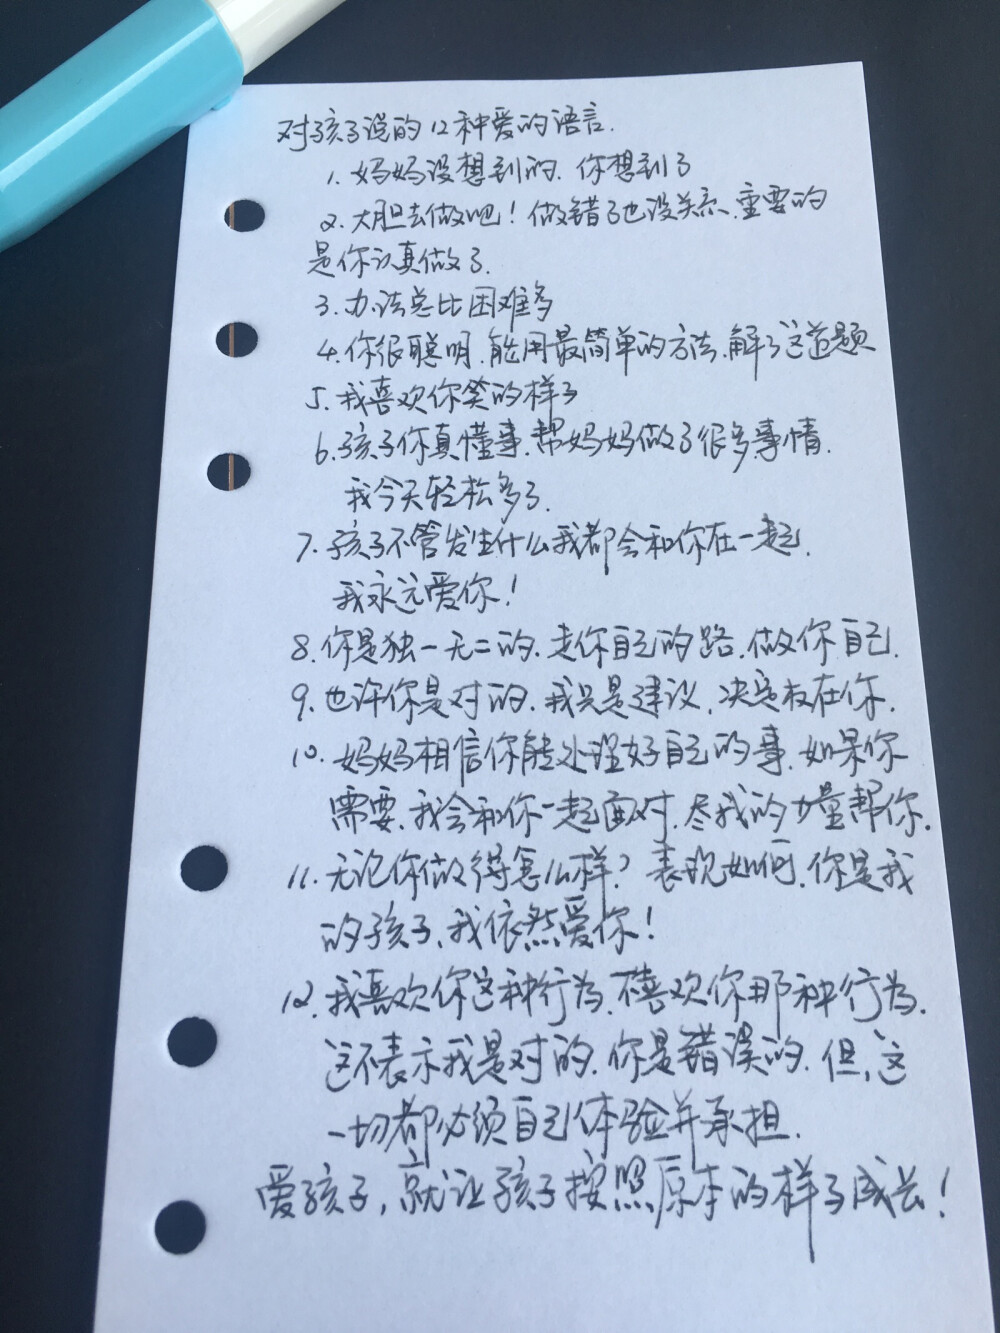 对孩子说的12种爱的语言.
1. 妈妈没想到的.你想到了
2. 大胆去做吧！做错了也没关系、重要的
是你认真做了.
3. 办法总比困难多
4. 你很聪明.能用最简单的方法.解了这道题
5. 我喜欢你笑的样子
6. 孩子你真懂事.帮妈妈做了很多事情.
我今天轻松多了.
7. 孩子不管发生什么我都会和你在一起.
我永远爱你！
8. 你是独一无二的.走你自己的路.做你自己.
9. 也许你是对的.我只是建议.决定权在你.
10. 妈妈相信你能处理好自己的事.如果你
需要.我会和你一起面对.尽我的力量帮你.
11. 无论你做得怎么样？表现如何.你是我
的孩子、我依然爱你！
12. 我喜欢你这种行为.不喜欢你那种行为.
这不表示我是对的.你是错误的.但,这
一切都必须自己体验并承担.
爱孩子,就让孩子按照原本的样子成长！